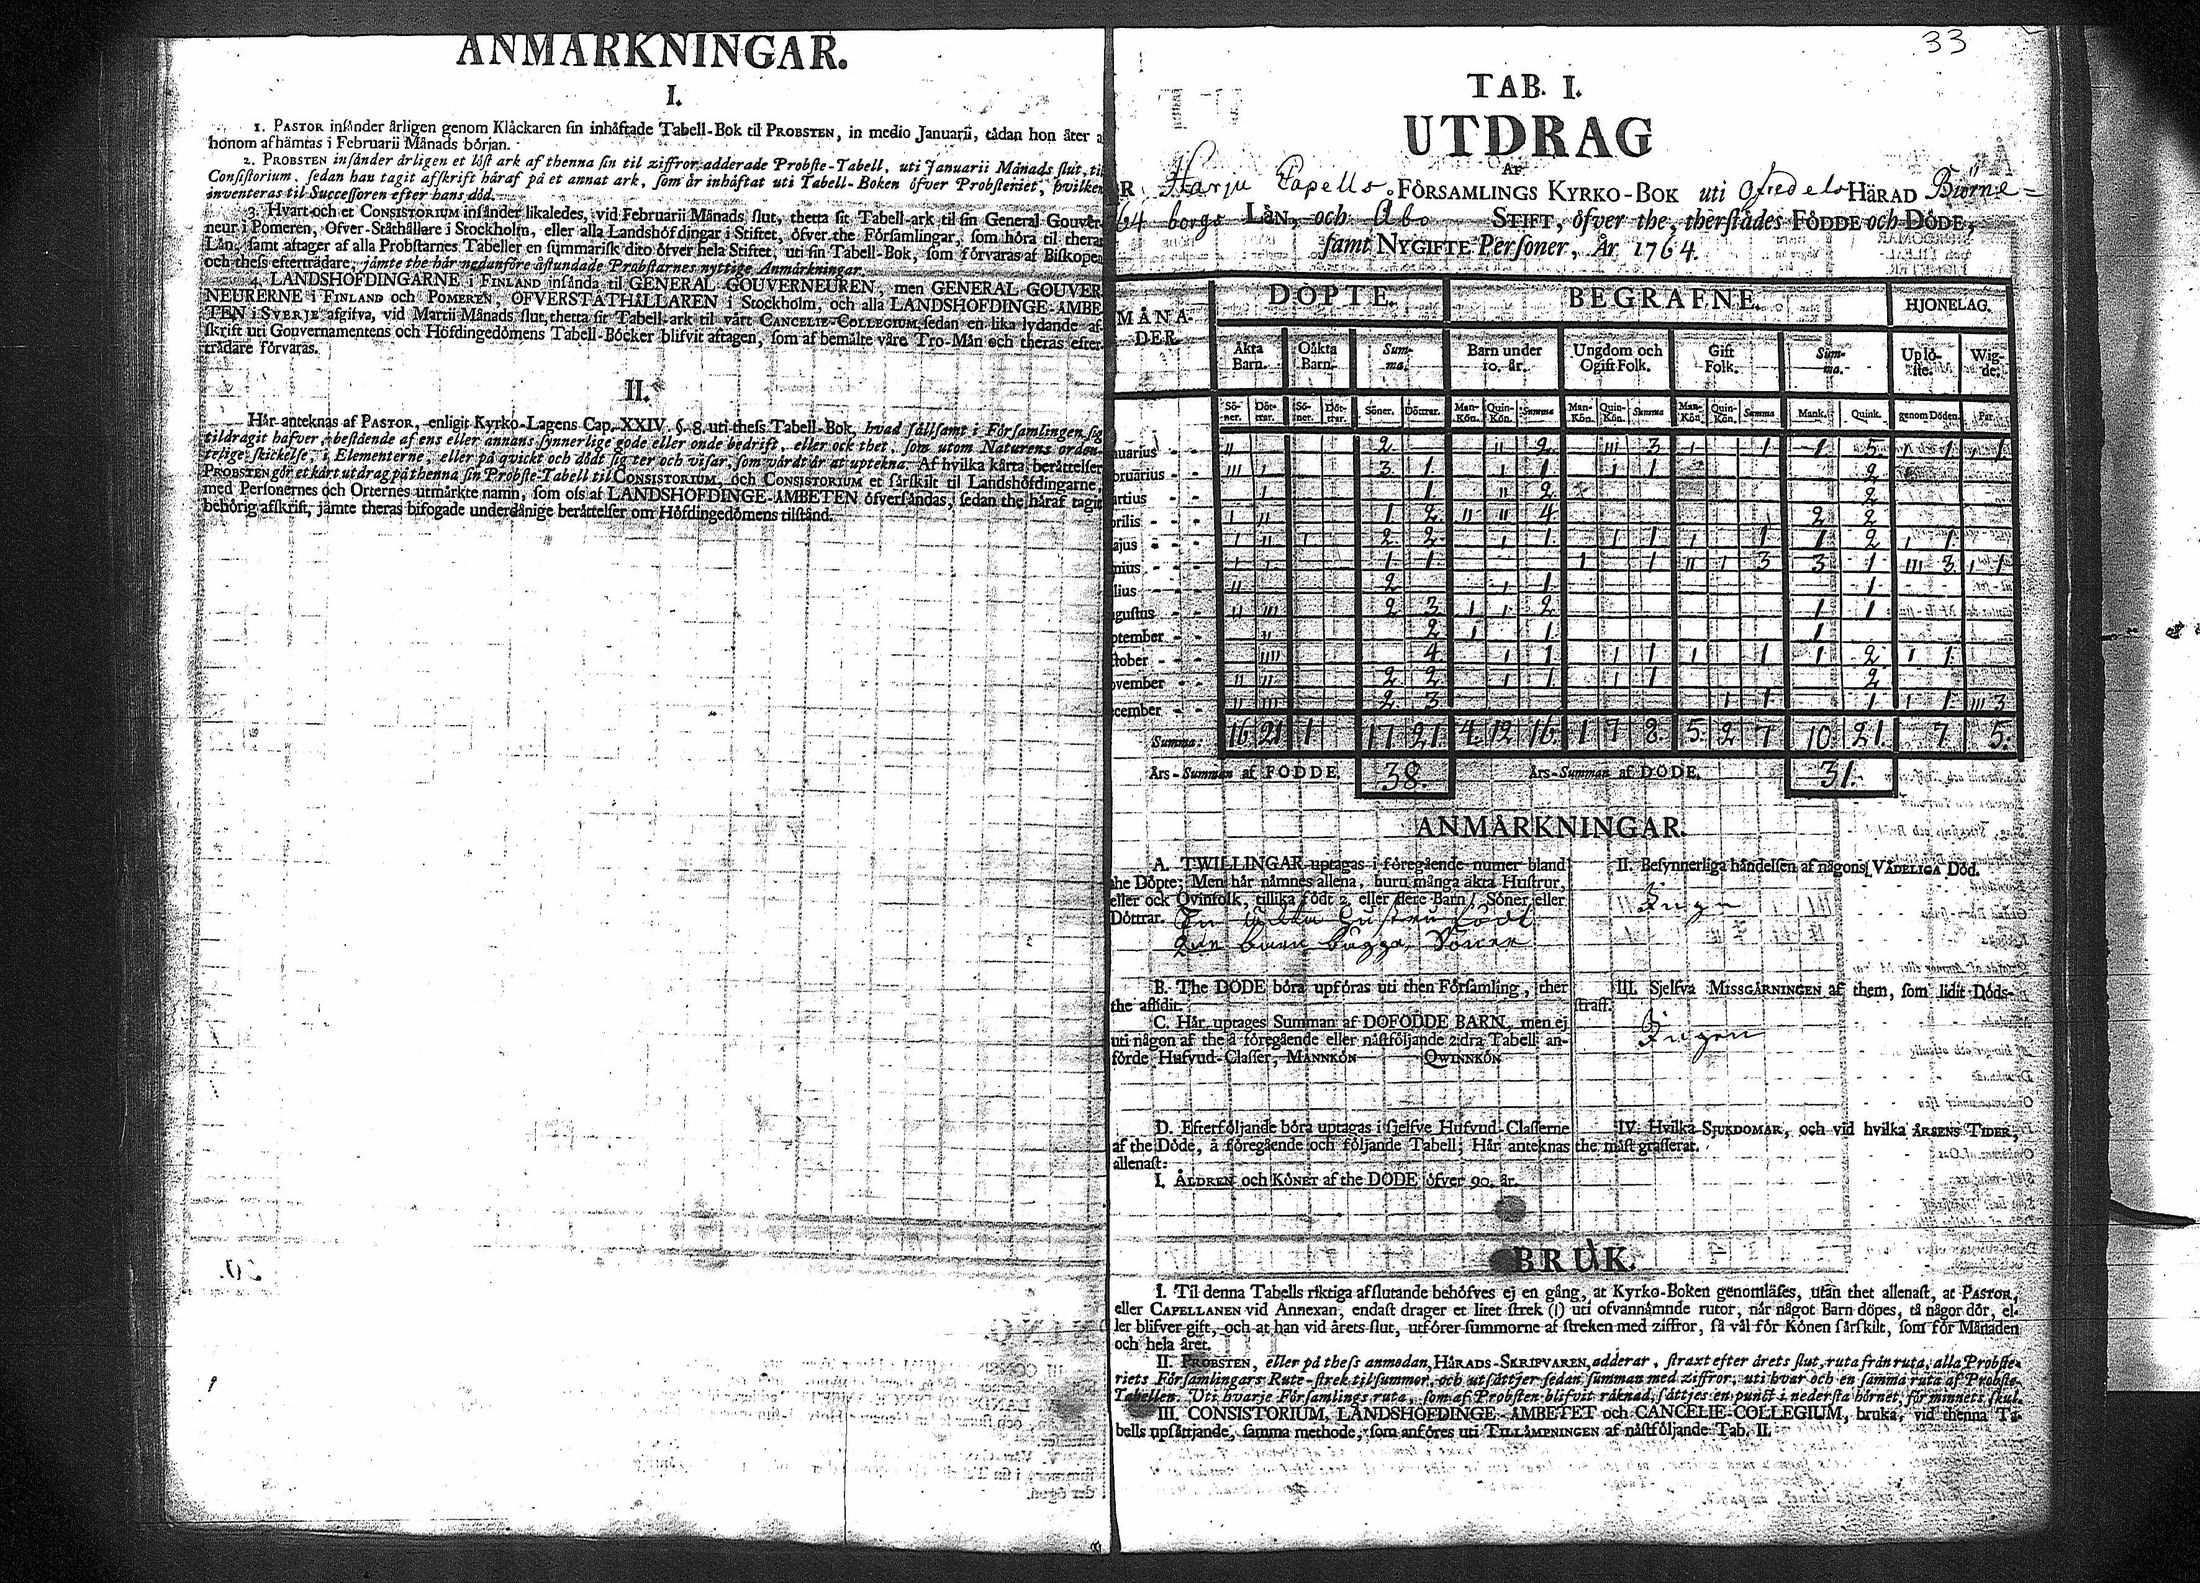 ANMÄRKNINGAR.
I.
1. PASTOR insänder årligen genom Klåckaren sin inhäftade Tabell-Bok til PROBSTEN, in medio Januarii, tådan hon åter a
honom afhämtas i Februarii Månads början.
2. PROBSTEN insänder årligen et löst ark af thenna sin til ziffror adderade Probste-Tabell, uti Januarii Månads slut, til
Consistorium, sedan han tagit afskrift häraf på et annat ark, som är inhäftat uti Tabell-Boken öfver Probsteriet, hvilken
inventeras til Successoren efter hans död.
3. Hvart och et CONSISTORIUM insänder likaledes, vid Februarii Månads slut, thetta sit Tabell-ark til sin General Gouver-
neur i Pomeren, Öfver-Ståthållare i Stockholm, eller alla Landshöfdingar i Stiftet, öfver the Församlingar, som höra til theras
Län, samt aftager af alla Probstarnes Tabeller en summarisk dito öfver hela Stiftet, uti sin Tabell-Bok, som förvaras af Biskopen
och thess efterträdare, jämte the här nedanföre åstundade Probstarnes nyttige Anmärkningar.
4. LANDSHÖFDINGARNE i FINLAND insända til GENERAL GOUVERNEUREN, men GENERAL GOUVER
NEURERNE i FINLAND och POMEREN, ÖFVERSTÅTHÅLLAREN i Stockholm, och alla LANDSHÖFDINGE-ÄMBE
TEN i SVERJE afgifva, vid Martii Månads slut, thetta sit Tabell-ark til vårt CANCELIE-COLLEGIUM, sedan en lika lydande af-
skrift uti Gouvernamentens och Höfdingedömens Tabell-Böcker blifvit aftagen, som af bemälte våre Tro-Män och theras efter
trädare förvaras.
II.
Här anteknas af PASTOR, enligit Kyrko-Lagens Cap. XXIV §. 8. uti thess Tabell-Bok, hvad sällsamt i Församlingen sig
tildragit hafver, bestående af ens eller annans synnerlige gode eller onde bedrift, eller ock thet, som utom Naturens orden-
telige skickelse, i Elementerne, eller på qvickt och dödt sig ter och visar, som värdt är at uptekna. Af hvilka korta berättelser
PROBSTEN gör et kårt utdrag på thenna sin Probste-Tabell til CONSISTORIUM, och CONSISTORIUM et särskilt til Landshöfdingarne,
med Personernes och Orternes utmärkte namn, som oss af LANDSHÖFDINGE-ÄMBETEN öfversändas, sedan the häraf tagit
behörig afskrift, jämte theras bifogade underdånige berättelser om Höfdingedömens tilstånd.
33
TAB. I.
UTDRAG
AF
Harju Capells FÖRSAMLINGS KYRKO-BOK uti Ofredels HÄRAD Biörne=
64 borgs LÄN, och Åbo STIFT, öfver the, therstädes FÖDDE och DÖDE,
samt NYGIFTE Personer, År 1764.
MÅNA- DÖPTE. BEGRAFNE. HJONELAG.
DER.
Äkta Oäkta Sum- Barn under Ungdom och Gift Sum- Uplö- Wig-
Barn. Barn. ma. 10. år. Ogift Folk. Folk. ma. ste. de.
Sö- Döt- Sö- Döt- Söner. Döttrar. Man- Quin- Summa Man- Quin- Summa Man- Quin- Summa Mank. Quink. genom Döden. Par
ner. trar. ner. trar. Kön. Kön. Kön. Kön. Kön. Kön.
nuarius II 2 II 2 III 3 I 1 1 5 I 1 I 1
bruarius III I 3 1 I 1 I 1 2
artius - - I 1 II 2 2
prilis - - I II 1 2 II II 4 2 2
ajus - - I II I 2 2 I 1 I 1 I 1 1 2 I 1
nius - - I I 1 1 I 1 II I 3 3 1 III 3 I 1
lius - - II 2 I 1 1
gustus - - II III 2 3 I I 2 1 1
ptember - - II 2 I 1 1
tober - - IIII 4 I 1 I 1 I 1 1 2 I 1
ovember - - II II 2 2 I 1 I 1 2
cember - - II III 2 3 I 1 1 I 1 III 3
Summa: 16 21 1 17 21. 4. 12 16. 1 7 8. 5. 2 7 10. 21. 7. 5.
Års-Summan af FÖDDE. 38. Års-Summan af DÖDE. 31.
ANMÄRKNINGAR.
A. TWILLINGAR uptagas i föregående numer bland
the Döpte; Men här nämnes allena, huru många äkta Hustrur,
eller ock Qvinfolk, tillika födt 2, eller flere Barn, Söner eller
Döttrar. En äkta hustru födt
2ne barn bägge Söner
B. The DÖDE böra upföras uti then Församling, ther
the aflidit.
C. Här uptages Summan af DÖFÖDDE BARN, men ej
uti någon af the å föregående eller nästföljande 2:dra Tabell an-
förde Hufvud-Classer, MANNKÖN QWINNKÖN
D. Efterföljande böra uptagas i sjelfve Hufvud-Classerne
af the Döde, å föregående och följande Tabell; Här anteknas
allenast:
I. ÅLDREN och KÖNET af the DÖDE öfver 90. år.
II. Besynnerliga händelsen af någons VÅDELIGA Död.
Ingen
III. Sjelfva MISSGÄRNINGEN af them, som lidit Döds-
straff.
Ingen
IV. Hvilka SJUKDOMAR, och vid hvilka ÅRSENS TIDER,
the mäst grasserat.
BRUK.
I. Til denna Tabells riktiga afslutande behöfves ej en gång, at Kyrko-Boken genomläses, utan thet allenast, at PASTOR,
eller CAPELLANEN vid Annexan, endast drager et litet strek (I) uti ofvannämnde rutor, när något Barn döpes, tå någor dör, el-
ler blifver gift, och at han vid årets slut, utförer summorne af streken med ziffror, så väl för Könen särskilt, som för Månaden
och hela året.
II. PROBSTEN, eller på thess anmodan, HÄRADS-SKRIFVAREN, adderar, straxt efter årets slut, ruta från ruta, alla Probste-
riets Församlingars Rute-strek til summor, och utsättjer sedan summan med ziffror, uti hvar och en samma ruta af Probste-
Tabellen. Uti hvarje Församlings ruta, som af Probsten blifvit räknad, sättjes en punct i nedersta hörnet, för minnets skul.
III. CONSISTORIUM, LANDSHÖFDINGE-ÄMBETET och CANCELIE-COLLEGIUM, bruka, vid thenna Ta-
bells upsättjande, samma methode, som anföres uti TILLÄMPNINGEN af nästföljande Tab. II.